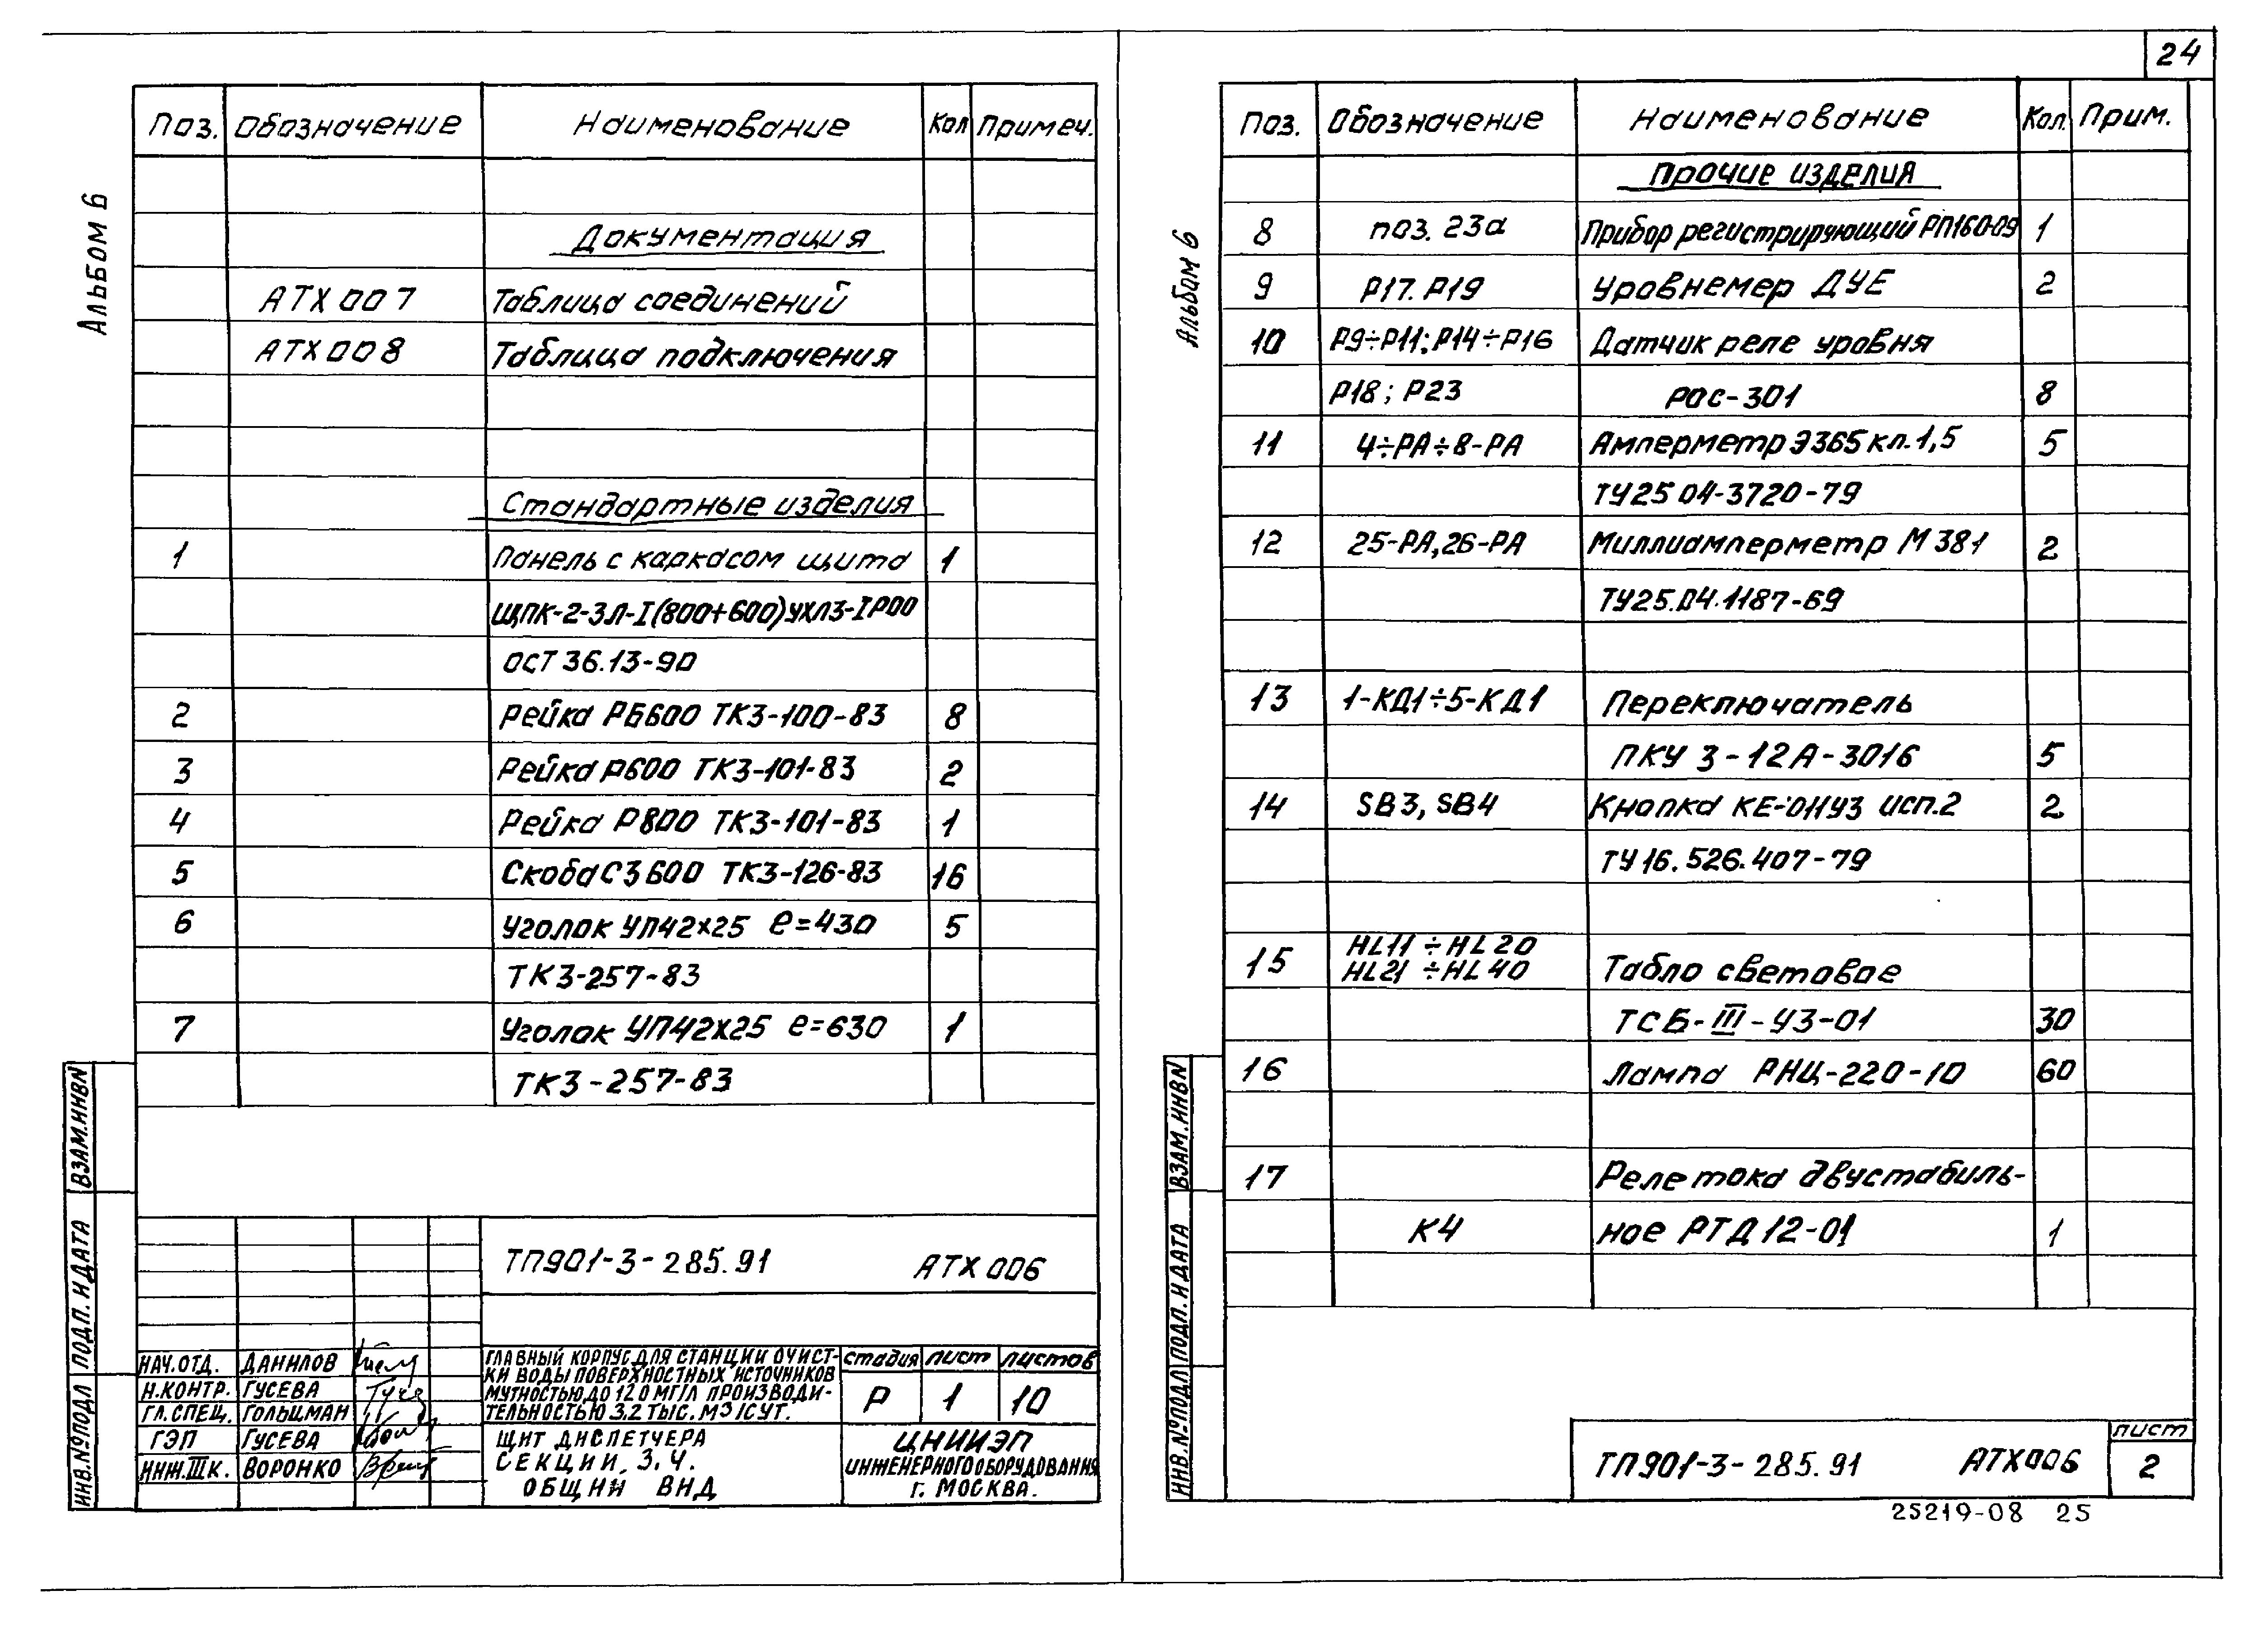 24
Альбом 6
Поз. Обозначение Наименование Кол Примеч.
Документация
АТХ 007 Таблица соединений
АТХ 008 Таблица подключения
Стандартные изделия
1 Панель с каркасом щита 1
ЩПК-2-ЗЛ-I(800+600)УХЛ3-IP00
ОСТ 36.13-90
2 Рейка РБ600 ТК3-100-83 8
3 Рейка Р600 ТК3-101-83 2
4 Рейка Р800 ТК3-101-83 1
5 Скоба С3 600 ТК3-126-83 16
6 Уголок УП42х25 ℓ=430 5
ТК3-257-83
7 Уголок УП42х25 ℓ=630 1
ТК3-257-83
ВЗАМ.ИНВN
ПОДП. И ДАТА
ИНВ.№ПОДЛ
ТП901-3-285.91 АТХ 006
НАЧ.ОТД. ДАНИЛОВ
Н.КОНТР. ГУСЕВА
ГЛ.СПЕЦ. ГОЛЬЦМАН
ГЭП ГУСЕВА
ИНЖ.IIIК. ВОРОНКО
ГЛАВНЫЙ КОРПУС ДЛЯ СТАНЦИИ ОЧИСТ-
КИ ВОДЫ ПОВЕРХНОСТНЫХ ИСТОЧНИКОВ
МУТНОСТЬЮ ДО 120 МГ/Л ПРОИЗВОДИ-
ТЕЛЬНОСТЬЮ 3.2 ТЫС. М3/СУТ.
стадия лист листов
Р 1 10
ЩИТ ДИСПЕТЧЕРА
СЕКЦИИ. 3, 4.
ОБЩИЙ ВИД
ЦНИИЭП
ИНЖЕНЕРНОГО ОБОРУДОВАНИЯ
Г. МОСКВА.
Альбом 6
Поз. Обозначение Наименование Кол. Прим.
Прочие изделия
8 поз. 23а Прибор регистрирующий РП160-09 1
9 Р17. Р19 Уровнемер ДУЕ 2
10 Р9÷Р11; Р14÷Р16 Датчик реле уровня
Р18; Р23 РОС-301 8
11 4÷РА÷8-РА Амперметр Э365 кл.1,5 5
ТУ25 04-3720-79
12 25-РА, 26-РА Миллиамперметр М 381 2
ТУ25.04.1187-69
13 1-КД1÷5-КД1 Переключатель
ПКУ 3-12А-3016 5
14 SB3, SB4 Кнопка КЕ-011У3 исп.2 2
ТУ16.526.407-79
HL11 ÷HL20
15 HL21 ÷HL40 Табло световое
ТСБ-III-У3-01 30
16 Лампа РНЦ-220-10 60
17 Реле тока двустабиль-
К4 ное РТД 12-01 1
ВЗАМ.ИНВN
ПОДП. И ДАТА
ИНВ.№ПОДЛ
ТП901-3-285.91 АТХ006
лист
2
25219-08 25